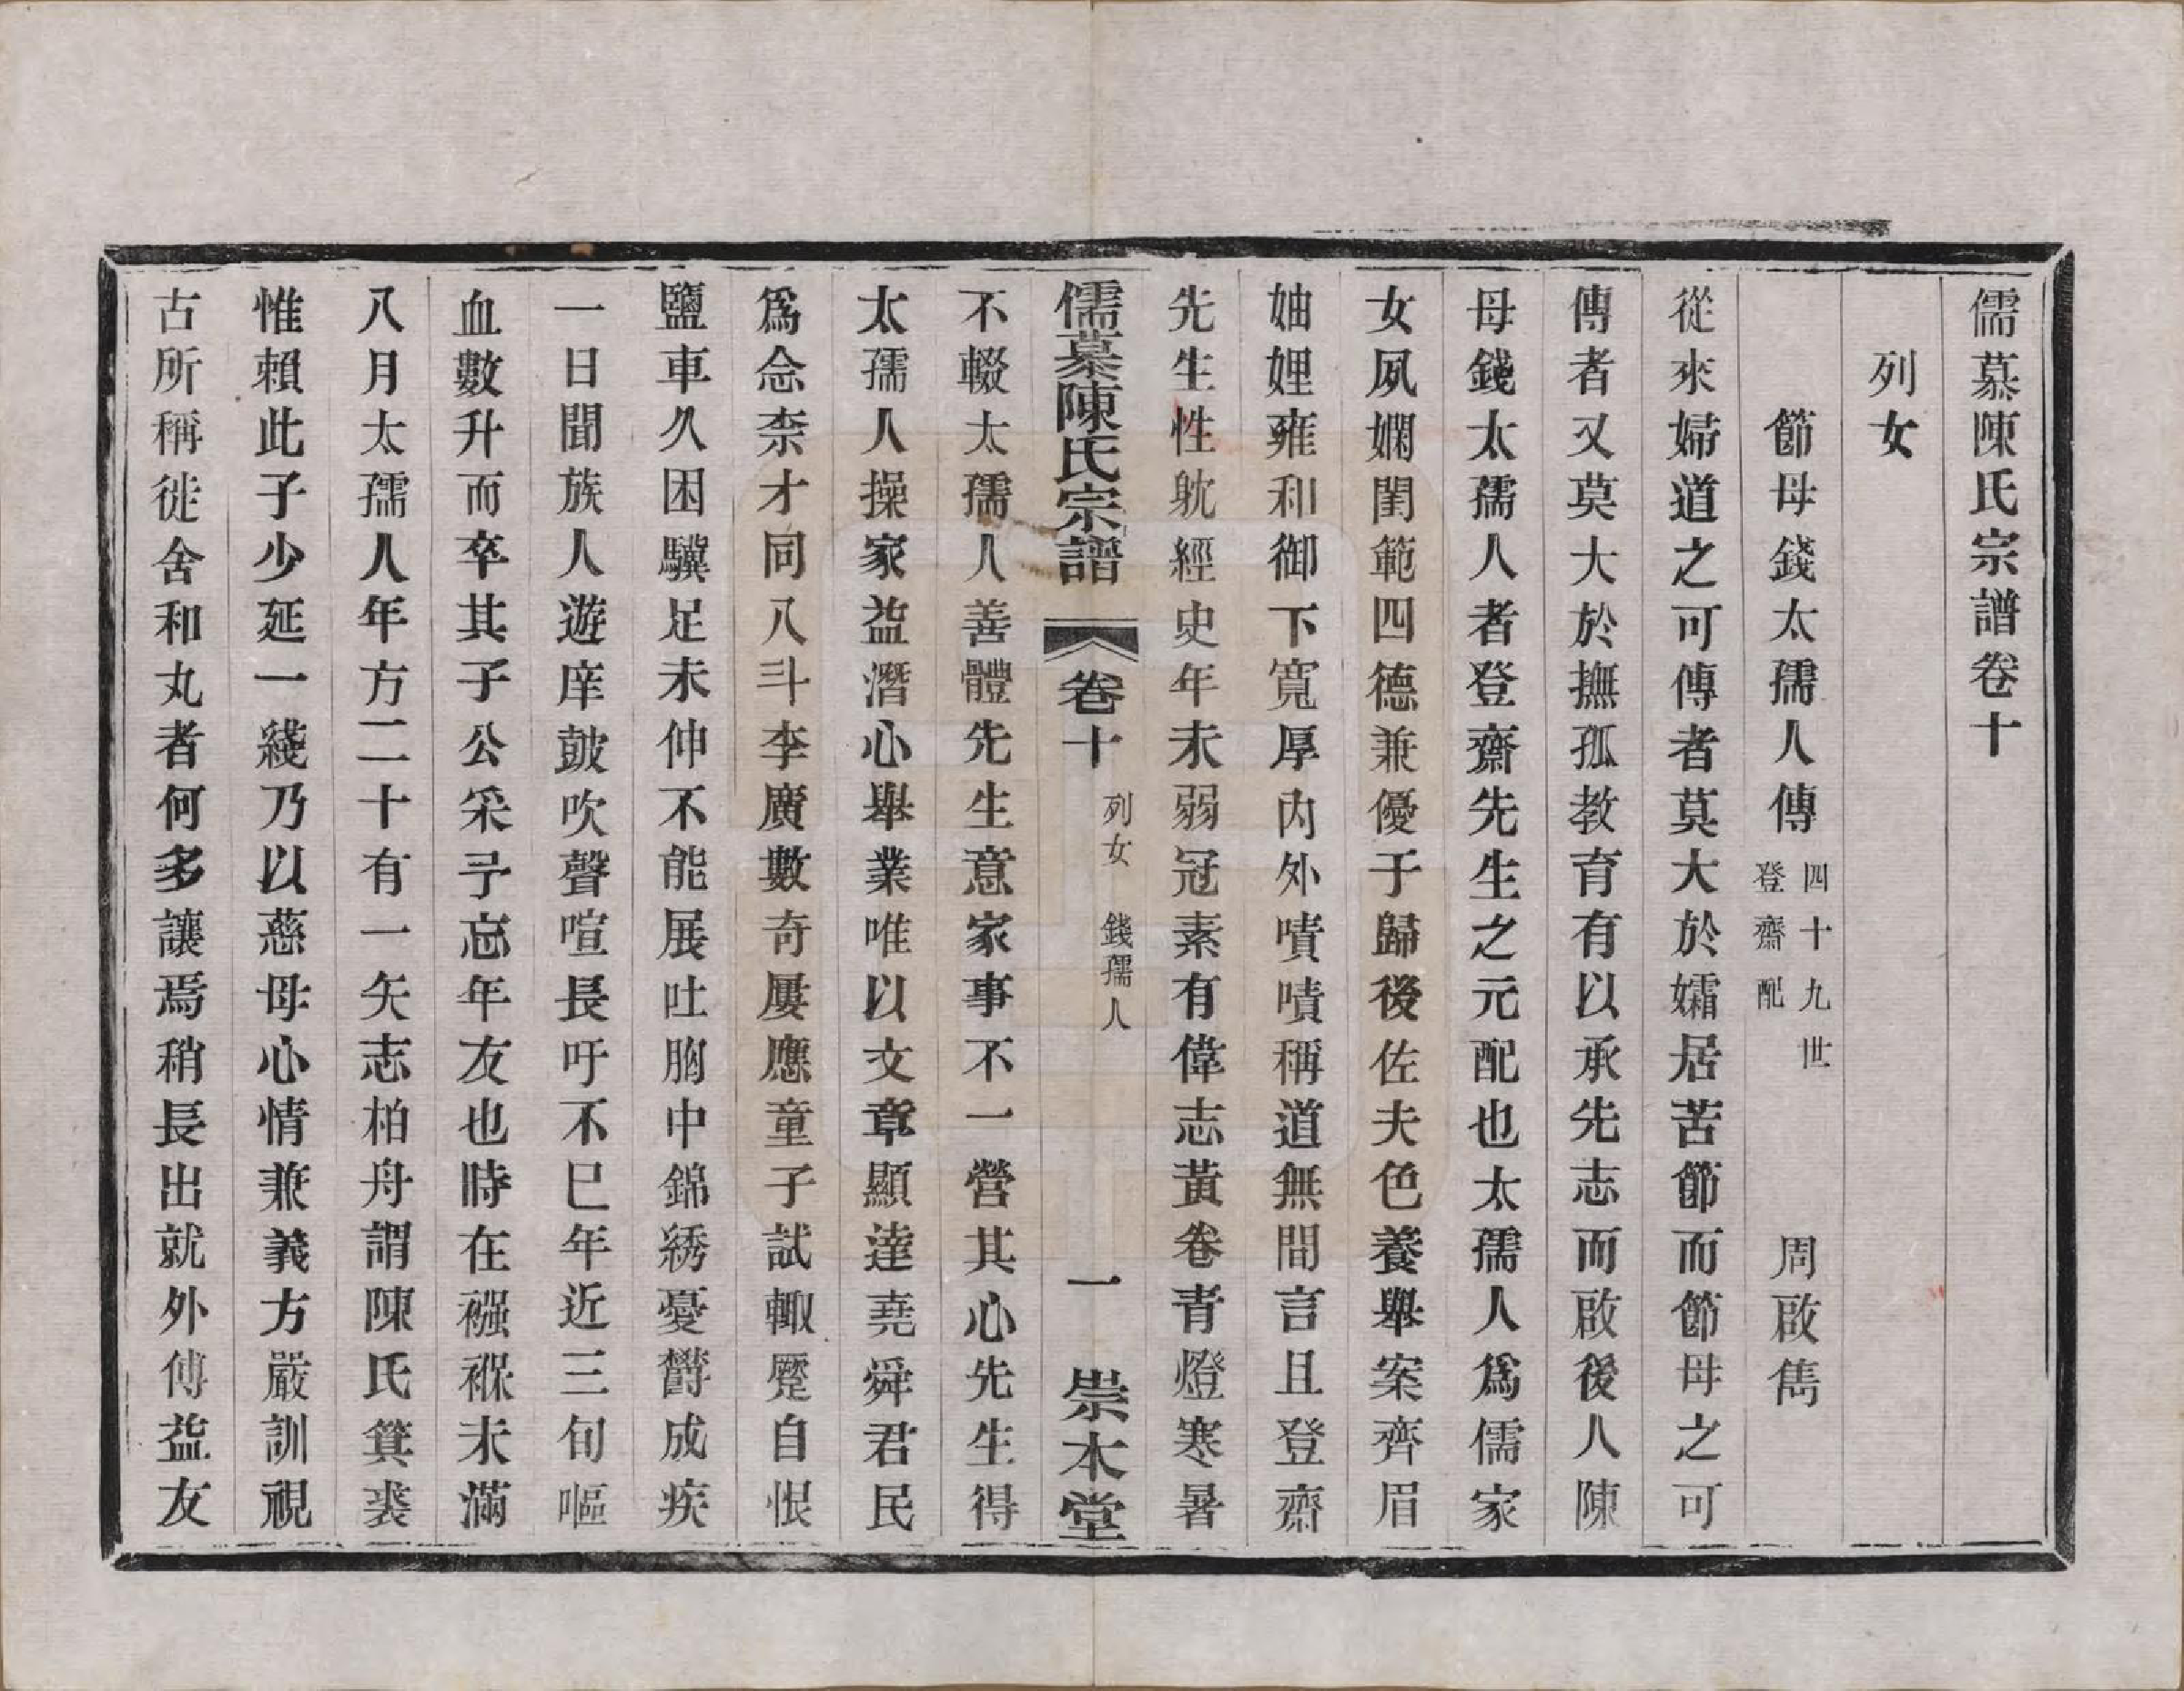 儒慕陳氏宗譜卷十
列女
節母錢太孺人傳
四十九世
登齋配
周啟雋
從來婦道之可傳者莫大於孀居苦節而節母之可
傳者又莫大於撫孤教育有以承先志而啟後人陳
母錢太孺人者登齋先生之元配也太孺人爲儒家
女夙嫻閨範四德兼優于歸後佐夫色養舉案齊眉
妯娌雍和御下寬厚內外嘖嘖稱道無間言且登齋
先生性躭經史年未弱冠素有偉志黃卷青燈寒暑
儒慕陳氏宗譜 卷十 列女 錢孺人 一 崇本堂
不輟太孺人善體先生意家事不一營其心先生得
太孺人操家益潛心舉業唯以文章顯達堯舜君民
爲念柰才同八斗李廣數奇屢應童子試輙蹷自恨
鹽車久困驥足未伸不能展吐胸中錦綉憂欝成疾
一日聞族人遊庠皷吹聲喧長吁不已年近三旬嘔
血數升而卒其子公采予忘年友也時在襁褓未滿
八月太孺人年方二十有一矢志柏舟謂陳氏箕裘
惟賴此子少延一綫乃以慈母心情兼義方嚴訓視
古所稱徙舍和丸者何多讓焉稍長出就外傅益友